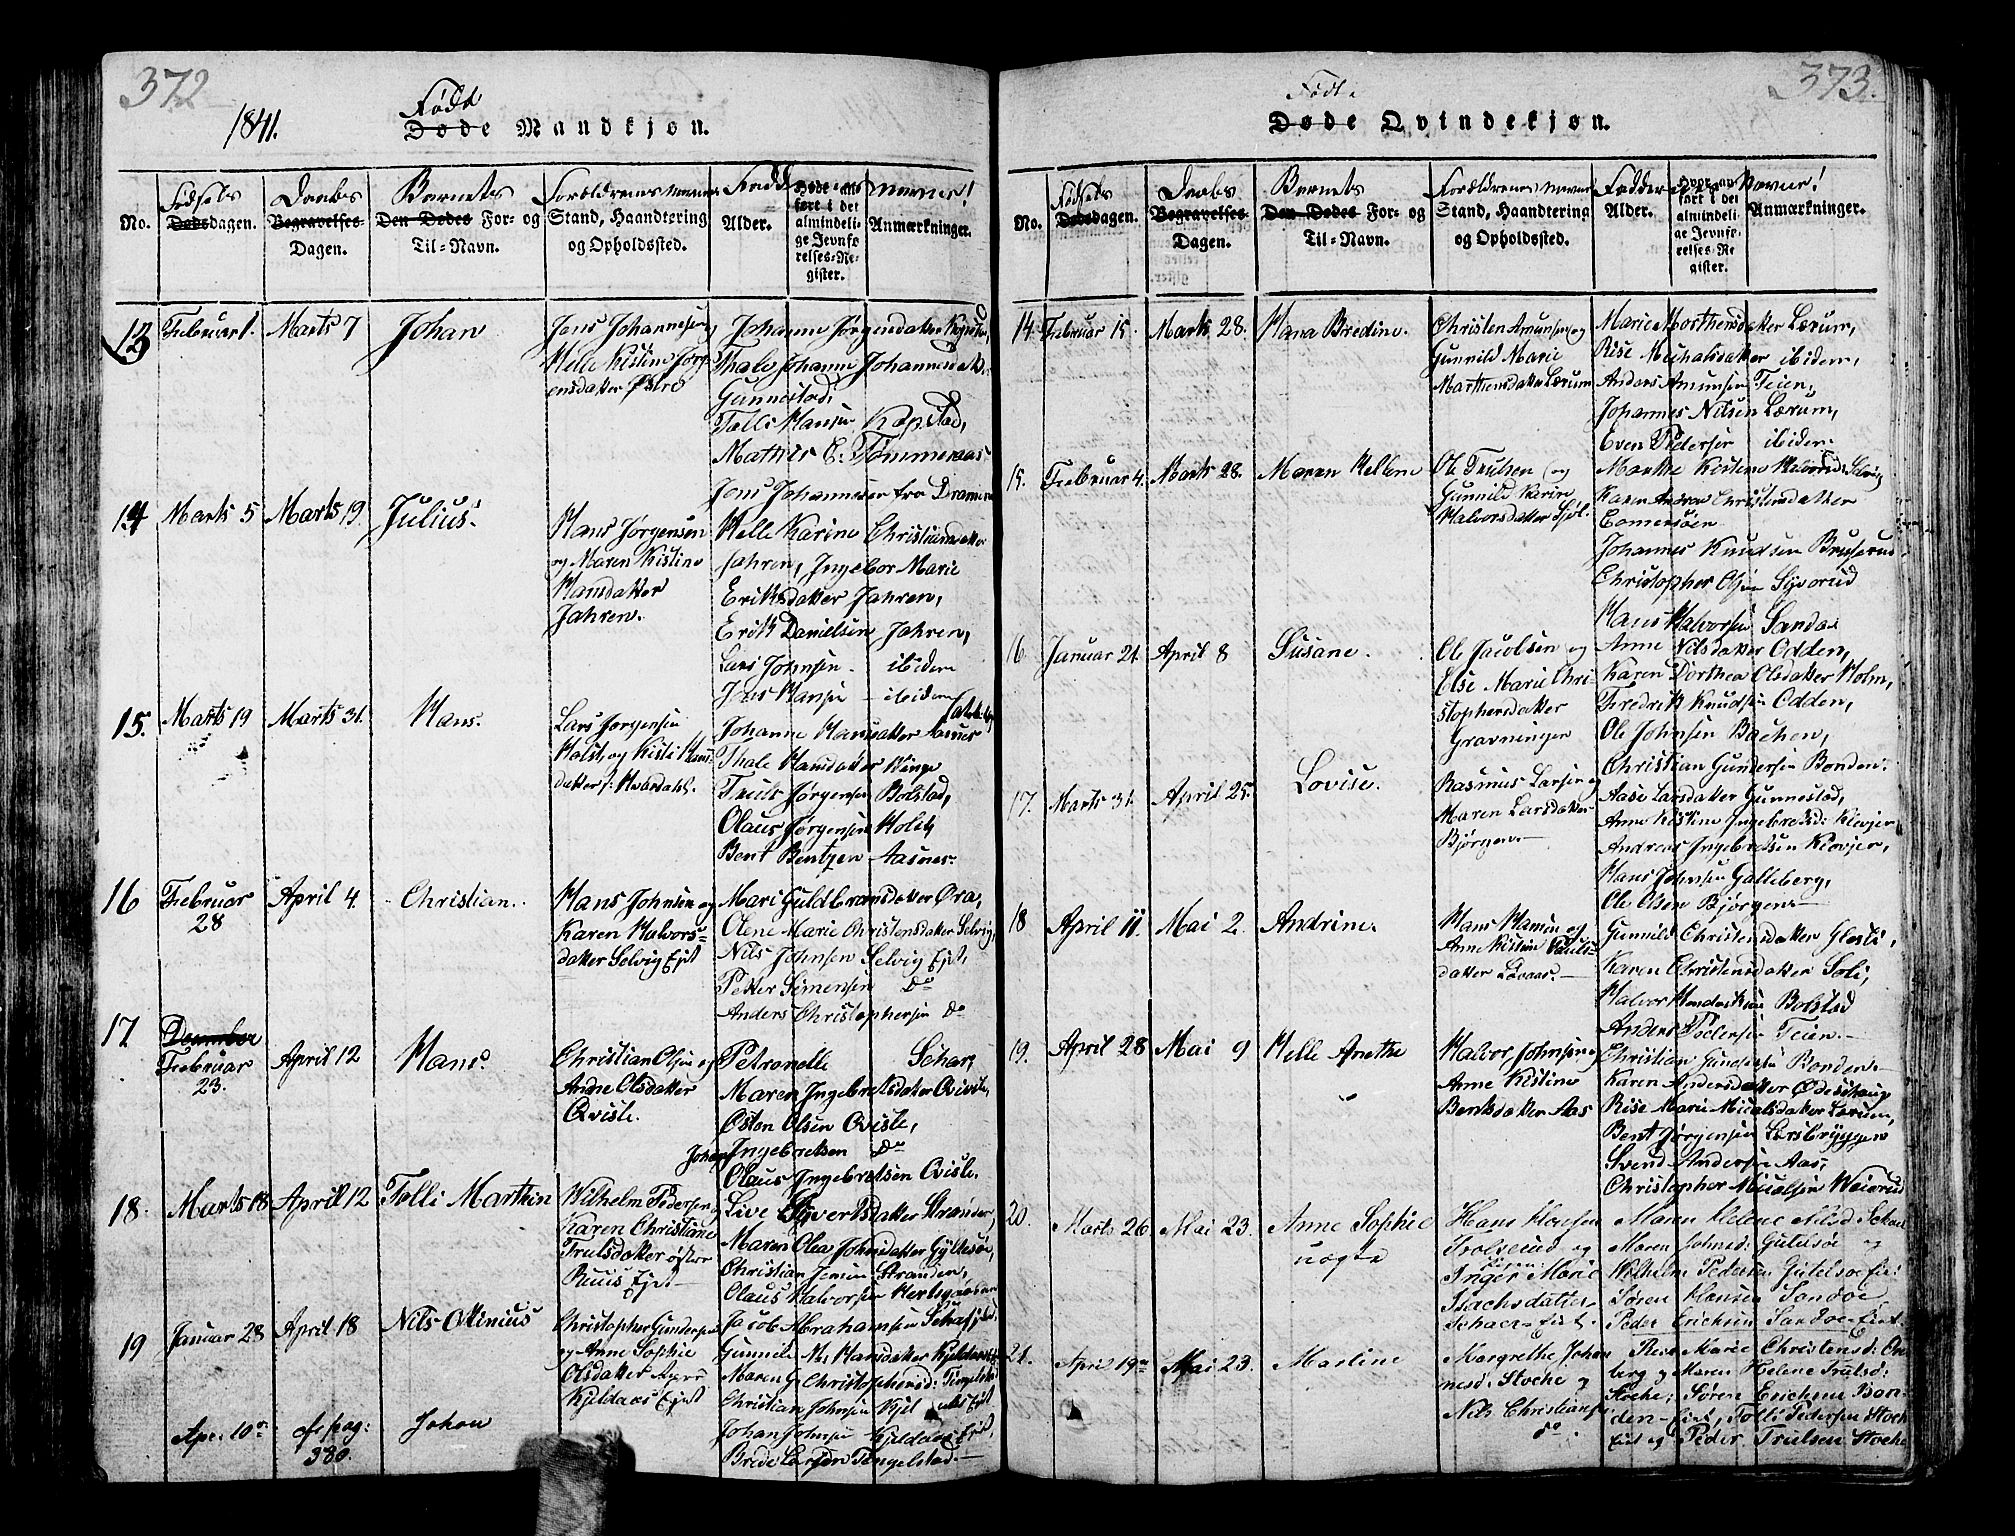 372
1841.
Fødd
Døde Mandkjøn.
No.
Fødsels
Dødsdagen.
Daabs
Begravelses-
Dagen.
Barnets
Den Dødes For- og
Til-Navn.
Forældrenes Navne
Stand, Haandtering
og Opholdssted.
Alder.
ført i det
almindeli-
ge Jevnfø-
relses-Re-
gister.
Navne!
Anmærkninger.
13
Februar 1.
Marts 7
Johan
Jens Johannesen og
Helle Kistine Jørg-
ensdatter
Johanne Jørgensdatter
Thale Johanne Johannesdatt.
Gunnestad,
Tolle Hansen Kopstad,
Mathis E. Tømmeraas
Jens Johannesen fra Drammen
14
Marts 5
Marts 19
Julius.
Hans Jørgensen
og Maren Kistine
Hansdatter
Jahren.
Helle Karine Christiansdatter
Jahren, Ingebor Marie
Eriksdatter Jahren,
Erik Danielsen Jahren,
Lars Johnsen ibidem
Jens Hansen ibidem
15.
Marts 19
Marts 31.
Hans.
Lars Jørgensen
Holst og Kisti Hans-
datter f. Hvardahl.
Johanne Hansdatter Aasnes
Thale Hansdatter Ringe
Truls Jørgensen Bolstad,
Olaus Jørgensen Holst,
Bent Bentzen Aasnes.
16
Februar
28
April 4.
Christian.
Hans Johnsen og
Karen Halvors-
datter Selvig Ejet
Mari Guldbransdatter Øra,
Olene Marie Christensdatter Selvig,
Nils Johnsen Selvig Ejet,
Petter Simensen Do
Anders Christophersen do
17
December
Februar
23.
April 12
Hans.
Christian Olsen og
Andrie Olsdatter
Qvisle.
Petronelle Schar,
Maren Ingebretsdatter Qvisle,
Østen Olsen Qvisle,
Johan Ingebretsen do
Olaus Ingebretsen Qvisle.
18.
Marts 18
April 12
Tolli Marthin
Wilhelm Pedersen og
Karen Christiane
Trulsdatter østre
Ruus Ejet
Live Sivertsdatter Stranden,
Maren Olea Johnsdatter Gyltesøe,
Christian Jensen Stranden,
Olaus Halvorsen
19
Januar 28
April 18
Nils Ottinius
Christopher Gundersen
og Anne Sophie
Olsdatter
Kjeldaas Ejet
Jacob Abrahamsen
Gunnele Hansdatter Kjeldaas
Maren G. Christophersd: Tingelstad
Christian Johnsen Kjeldaas Ejet
Johan Johnsen Kjeldaas Ejet,
Brede Larsen Tingelstad.
Apr. 10de
cfr pag:
380.
Johan
373.
Født
Døde Qvindekjøn.
No.
Fødsels
Dødsdagen.
Daabs
Begravelses-
Dagen.
Barnets
Den Dødes For- og
Til-Navn.
Forældrenes Navne
Stand, Haandtering
og Opholdssted.
Alder.
ført i det
almindeli-
ge Jevnfø-
relses-Re-
gister.
Navne!
Anmærkninger.
14.
Februar 15.
Marts 28.
Hana Bredine.
Christen Amunsen og
Gunnild Marie
Marthensdatter Lærum
Marie Morthensdatter Lærum,
Rise Michalsdatter ibidem,
Anders Amunsen Teien,
Johannes Nilsen Lærum,
Even Pedersen ibidem
15.
Februar 4.
Marts 28.
Maren Hellene
Ole Trulsen og
Gunnild Karine
Halvorsdatter Sjøl.
Marthe Kistine Halvorsd: Selvig
Karen Andrea Christensdatter
Johannes Knudsen Bruserud
Christopher Olsen Syverud
Hans Halvorsen Sandøe
16.
Januar 21.
April 8
Susane.
Ole Jacobsen og
Else Marie Chri-
stophersdatter
Gravningen
Anne Nilsdatter Odden,
Karen Dorthea Olsdatter Holm,
Fredrik Knudsen Odden,
Ole Johnsen Bachen,
Christian Gundersen Bonden.
17.
Marts 31.
April 25.
Lovise.
Rasmus Larsen og
Maren Larsdatter
Bjørgen
Aase Larsdatter Gunnestad,
Anne Kistine Ingebretsd: Klovjer,
Andreas Ingebretsen Klovjer,
Hans Johnsen Galleberg,
Ole Olsen Bjørgen
18
April 11.
Mai 2.
Andrine.
Hans Hansen og
Anne Kistine Pauls-
datter Løvaas.
Gunnild Christensdatter
Karen Christensdatter Soli,
Halvor Hendriksen Bolstad
Anders Pedersen Teien.
Christian Gundersen Bonden.
19.
April 28
Mai 9
Helle Anethe
Halvor Johnsen og
Anne Kistine
Bentsdatter Aas
Karen Andersdatter Ødeschaug
Rise Marie Micalsdatter Lærum,
Bent Jørgensen Larsbryggen
Svend Andersen Aas,
Christopher Micalsen Weierud
20.
Marts 26.
Mai 23.
Anne Sophie
uægte
Hans Hansen
Trolserud og
Pigen
Inger Marie
Isachsdatter
Schaer-Eiet.
Maren Helene
Maren Johnsd: Gulelsøe og
Wilhelm Pedersen Gulelsøe Eiet
Søren Hansen Sandøe
Peder Erichsen Sandøe-Eiet.
21.
April 19de
Mai 23.
Martine
Margrethe Johan-
nesd. Stoche og
Nils Christiansen
do
Thea Marie Christensd:
berg og Maren Helene Trulsd:
Stoche; Søren Erichsen Bon-
den-Eiet, Tolli Pedersen Stoche
Eiet og Peder Trulsen Stoche